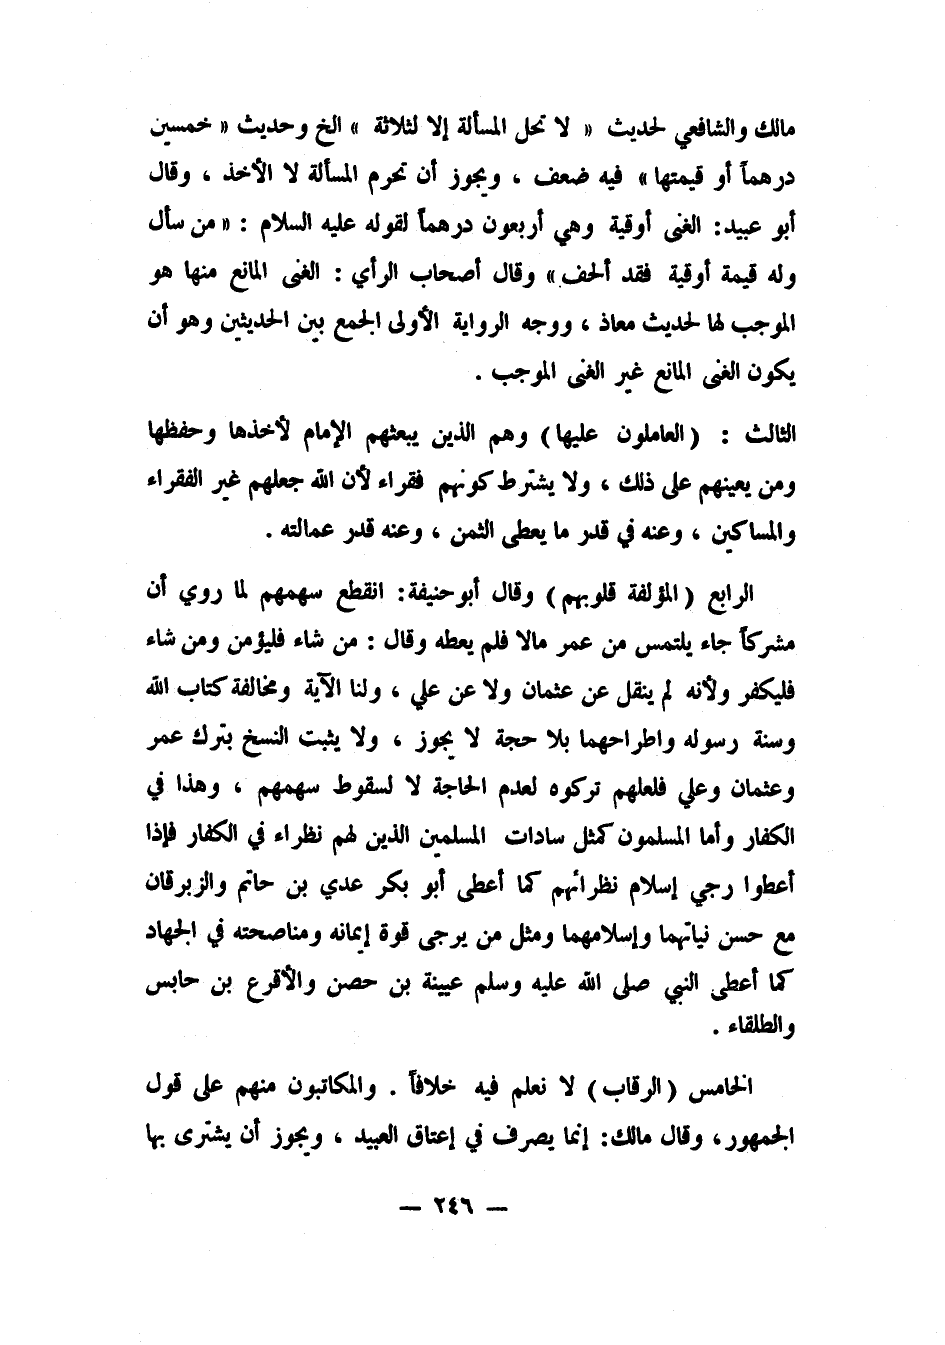 مالك والشافعي لحديث « لا تحل المسألة إلا لثلاثة » الخ وحديث « خمسين
درهماً أو قيمتها » فيه ضعف ، ويجوز أن تحرم المسألة لا الأخذ ، وقال
أبو عبيد: الغنى أوقية وهي أربعون درهماً لقوله عليه السلام : « من سأل
وله قيمة أوقية فقد ألحف » وقال أصحاب الرأي : الغنى المانع منها هو
الموجب لها لحديث معاذ ، ووجه الرواية الأولى الجمع بين الحديثين وهو أن
يكون الغنى المانع غير الغنى الموجب .
الثالث : ( العاملون عليها ) وهم الذين يبعثهم الإمام لأخذها وحفظها
ومن يعينهم على ذلك ، ولا يشترط كونهم فقراء لأن الله جعلهم غير الفقراء
والمساكين ، وعنه في قدر ما يعطى الثمن ، وعنه قدر عمالته .
الرابع ( المؤلفة قلوبهم ) وقال أبو حنيفة: انقطع سهمهم لما روي أن
مشركاً جاء يلتمس من عمر مالا فلم يعطه وقال : من شاء فليؤمن ومن شاء
فليكفر ولأنه لم ينقل عن عثمان ولا عن علي ، ولنا الآية ومخالفة كتاب الله
وسنة رسوله واطراحهما بلا حجة لا يجوز ، ولا يثبت النسخ بترك عمر
وعثمان وعلي فلعلهم تركوه لعدم الحاجة لا لسقوط سهمهم ، وهذا في
الكفار وأما المسلمون كمثل سادات المسلمين الذين لهم نظراء في الكفار فإذا
أعطوا رجي إسلام نظرائهم كما أعطى أبو بكر عدي بن حاتم والزبرقان
مع حسن نياتهما وإسلامهما ومثل من يرجى قوة إيمانه ومناصحته في الجهاد
كما أعطى النبي صلى الله عليه وسلم عيينة بن حصن والأقرع بن حابس
والطلقاء .
الخامس ( الرقاب ) لا نعلم فيه خلافاً . والمكاتبون منهم على قول
الجمهور، وقال مالك: إنما يصرف في إعتاق العبيد ، ويجوز أن يشترى بها
— ٢٤٦ —